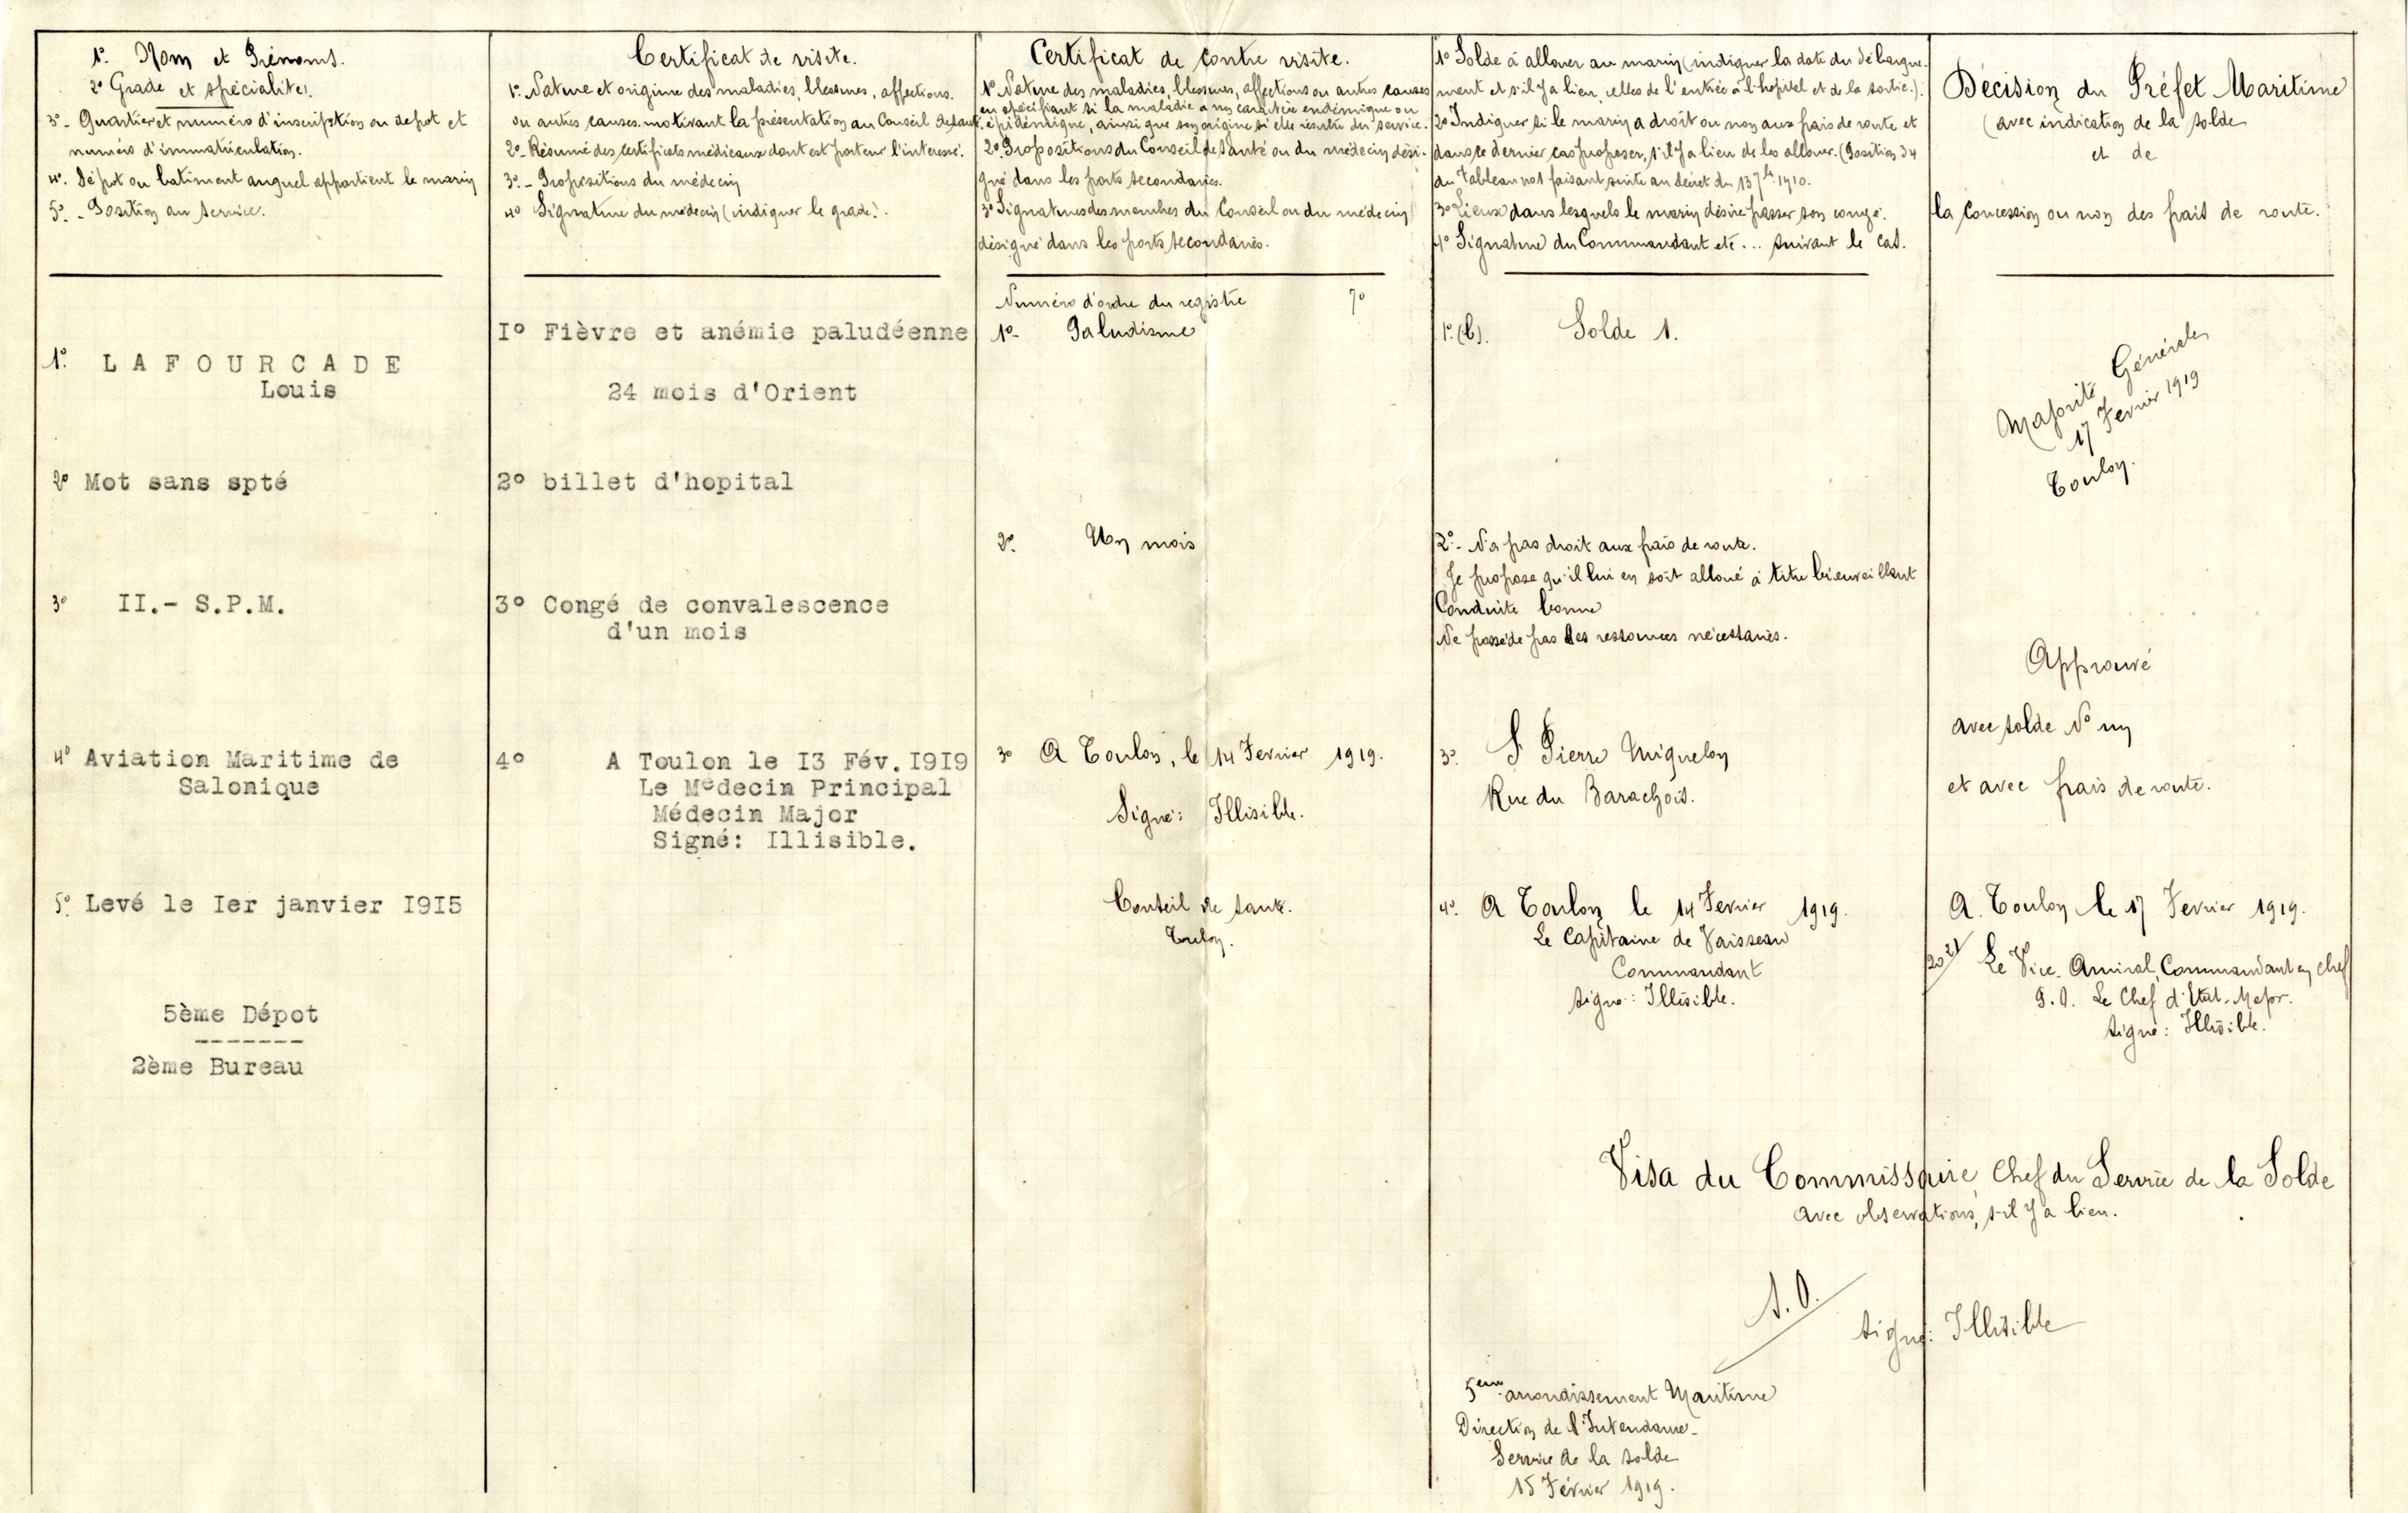 1º. Nom et Prénoms.
2º Grade et spécialités.
3º- Quartier et numéro d'inscription ou depot et
numéro d'immatriculation.
4º. Dépot ou batiment auquel appartient le marin
5º.- Position au service.
1º. LAFOURCADE
Louis
2º Mot sans spté
3º II.- S.P.M.
4º Aviation Maritime de
Salonique
5º. Levé le Ier janvier I9I5
5ème Dépot
-------
2ème Bureau
Certificat de visite.
1º. Nature et origine des maladies, blessures, affections.
ou autres causes motivant la présentation au Conseil de santé.
2º- Résumé des certificats médicaux dont est porteur l'interessé.
3º.- Propositions du médecin
4º Signature du médecin (indiquer le grade).
Iº Fièvre et anémie paludéenne
24 mois d'Orient
2º billet d'hopital
3º Congé de convalescence
d'un mois
4º A Toulon le I3 Fév. I9I9
Le Médecin Principal
Médecin Major
Signé: Illisible.
Certificat de contre visite.
1º Nature des maladies, blessures, affections ou autres causes
en spécifiant si la maladie a un caractère endémique ou
épidémique, ainsi que son origine si elle résulte du service.
2º. Propositions du Conseil de Santé ou du médecin dési-
gné dans les ports secondaires.
3º Signatures des membres du Conseil ou du médecin
désigné dans les ports secondaires.
Numéro d'ordre du registre 70
1º- Paludisme
2º. Un mois
3º A Toulon, le 14 Fevrier 1919.
Signé: Illisible.
Conseil de santé.
Toulon.
1º Solde à allouer au marin (indiquer la date du débarque-
ment et s'il y a lieu, celles de l'entrée à l'hopital et de la sortie.).
2º Indiquer si le marin a droit ou non aux frais de route et
dans ce dernier cas proposer, s'il y a lieu de les allouer. (Position 34
du tableau nº1 faisant suite au décret du 13 7bre 1910.
3º Lieux dans lesquels le marin désire passer son congé.
4º Signature du Commandant etc... suivant le cas.
1º. (b). Solde 1.
2º.- N'a pas droit aux frais de route.
Je propose qu'il lui en soit alloué à titre bienveillant
Conduite bonne
Ne possède pas les ressources nécessaires.
3º. St Pierre Miquelon
Rue du Barachois.
4º. A Toulon le 14 Fevrier 1919.
Le Capitaine de Vaisseau
Commandant
signé: Illisible.
Décision du Préfet Maritime
(avec indication de la solde
et de
la concession ou non des frais de route.
Majorité Générale
17 Fevrier 1919
Toulon.
Approuvé
avec solde Nº un
et avec frais de route.
A. Toulon le 17 Fevrier 1919.
Le Vice-Amiral, Commandant en chef
P.O. Le Chef d'Etat-Major.
signé: Illisible.
Visa du Commissaire, Chef du Service de la Solde
avec observations, s'il y a lieu.
S.O.
signé: Illisible
5ème arrondissement Maritime
Direction de l'Intendance-
Service de la solde
15 Février 1919.